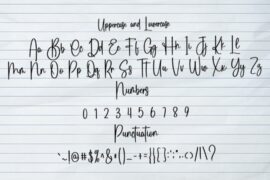 Uppercase and Lowercase
Aa Bb Cc Dd Ee Ff Gg Hh Ii Jj Kk Ll
Mm Nn Oo Pp Qq Rr Ss Tt Uu Vv Ww Xx Yy Zz
Numbers
0 1 2 3 4 5 6 7 8 9
Punctuation
`~!@#$%^&*()_-+={}[]:;"',.<>/|\?